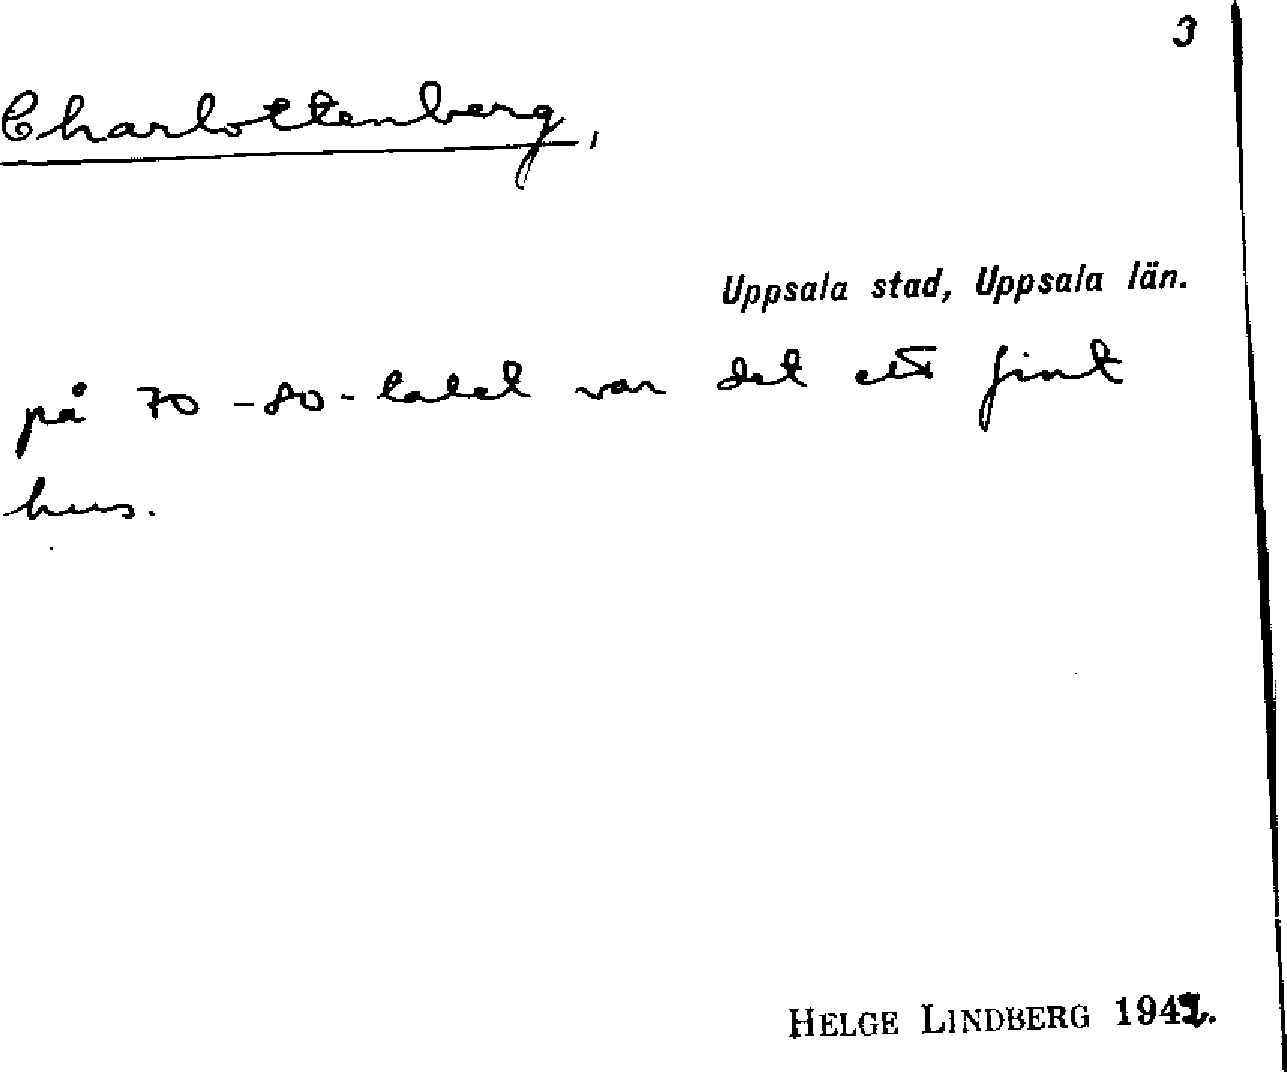 3
Charlottenberg,
Uppsala stad, Uppsala län.
på 70-80-talet var det ett fint
hus.
HELGE LINDBERG 1942.